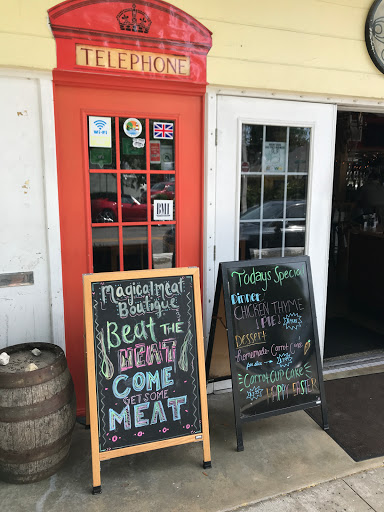 TELEPHONE
Wi-Fi
BMI
Magical Meat
Boutique
Beat THE
MEAT
COME
GET SOME
MEAT
Todays Special
Dinner
CHICKEN THYME
PIE
Dessert
Homemade Carrot Cake
Carrot Cup Cake
HAPPY EASTER